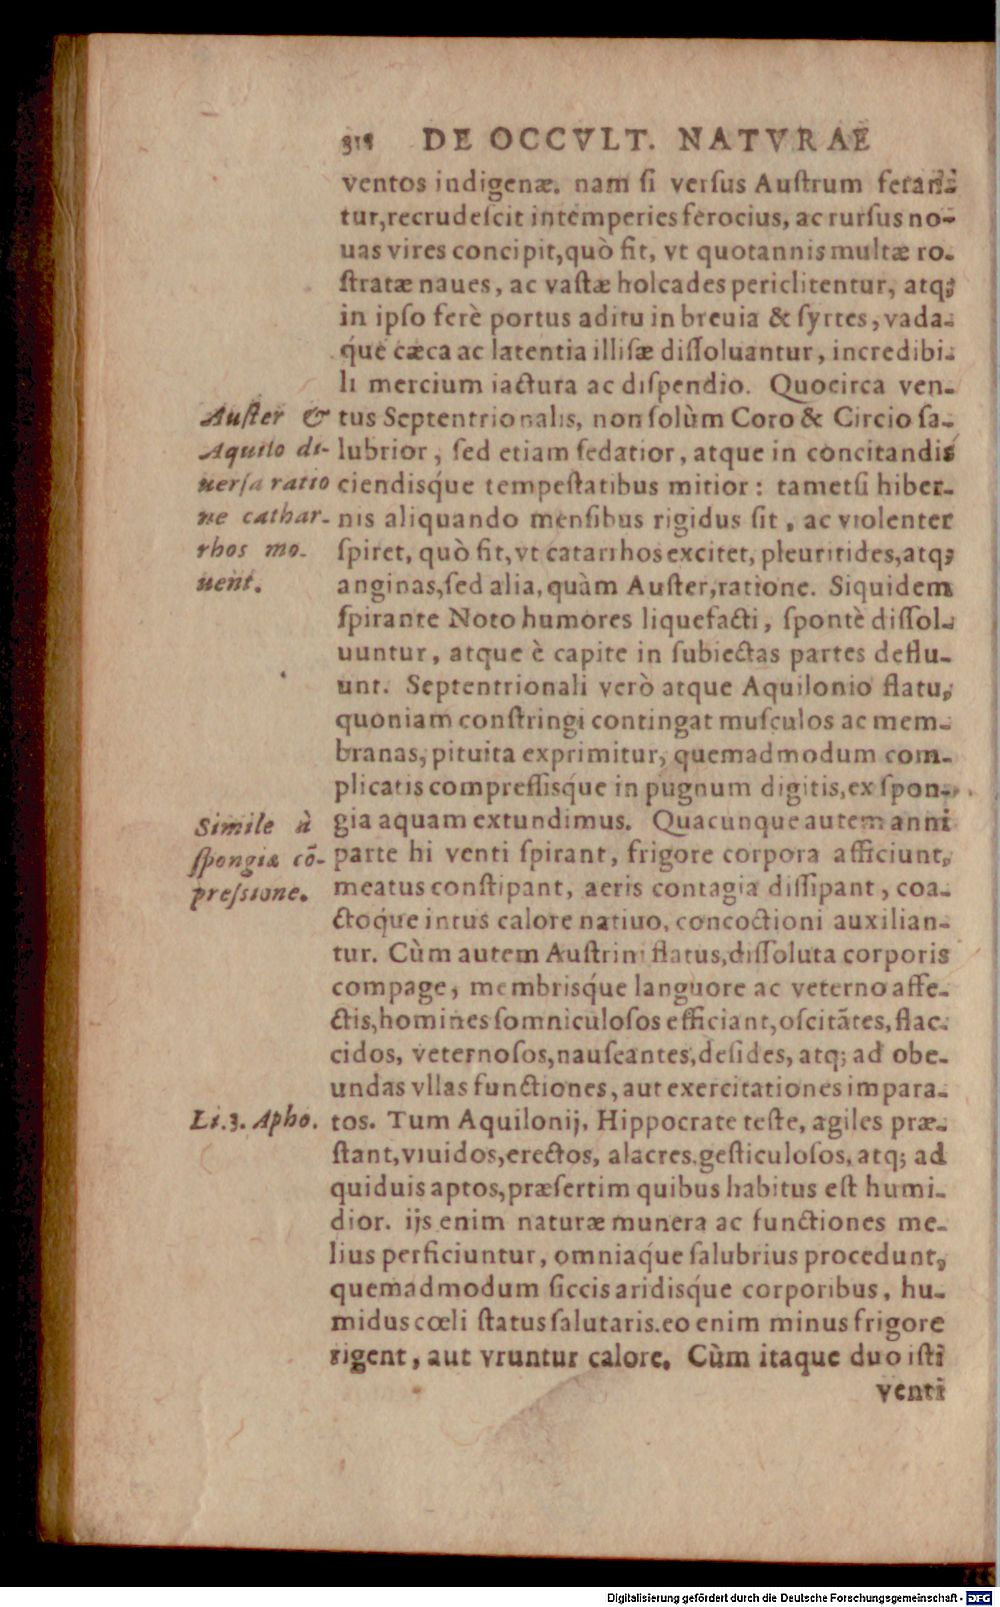 DE OCCVLT. NATVRAE
ventos indigenæ. nam si versus Austrum feran-
tur, recrudescit intemperies ferocius, ac rursus no-
uas vires concipit, quò fit, vt quotannis multæ ro-
stratæ naues, ac vastæ holcades periclitentur, atq;
in ipso ferè portus aditu in breuia & syrtes, vada-
q́ue cæca ac latentia illisæ dissoluantur, incredibi-
li mercium iactura ac dispendio. Quocirca ven-
tus Septentrionalis, non solùm Coro & Circio sa-
lubrior, sed etiam sedatior, atque in concitandis
ciendisq́ue tempestatibus mitior: tametsi hiber-
nis aliquando mensibus rigidus sit, ac violenter
spiret, quò fit, vt catarrhos excitet, pleuritides, atq;
anginas, sed alia, quàm Auster, ratione. Siquidem
spirante Noto humores liquefacti, spontè dissol-
uuntur, atque è capite in subiectas partes deflu-
unt. Septentrionali verò atque Aquilonio flatu,
quoniam constringi contingat musculos ac mem-
branas, pituita exprimitur, quemadmodum com-
plicatis compressisq́ue in pugnum digitis, ex spon-
gia aquam extundimus. Quacunque autem anni
parte hi venti spirant, frigore corpora afficiunt,
meatus constipant, aeris contagia dissipant, coa-
ctoq́ue intus calore natiuo, concoctioni auxilian-
tur. Cùm autem Austrini flatus, dissoluta corporis
compage, membrisq́ue languore ac veterno affe-
ctis, homines somniculosos efficiant, oscitãtes, flac-
cidos, veternosos, nauseantes, desides, atq; ad obe-
undas vllas functiones, aut exercitationes impara-
tos. Tum Aquilonij, Hippocrate teste, agiles præ-
stant, viuidos, erectos, alacres, gesticulosos, atq; ad
quiduis aptos, præsertim quibus habitus est humi-
dior. ijs enim naturæ munera ac functiones me-
lius perficiuntur, omniaq́ue salubrius procedunt,
quemadmodum siccis aridisq́ue corporibus, hu-
midus cœli status salutaris. eo enim minus frigore
rigent, aut vruntur calore. Cùm itaque duo isti
venti
Auster &
Aquilo di-
uersa ratio
ne cathar-
rhos mo-
uent.
Simile à
spongiæ cõ-
pressione.
Li. 3. Apho.
Digitalisierung gefördert durch die Deutsche Forschungsgemeinschaft - DFG